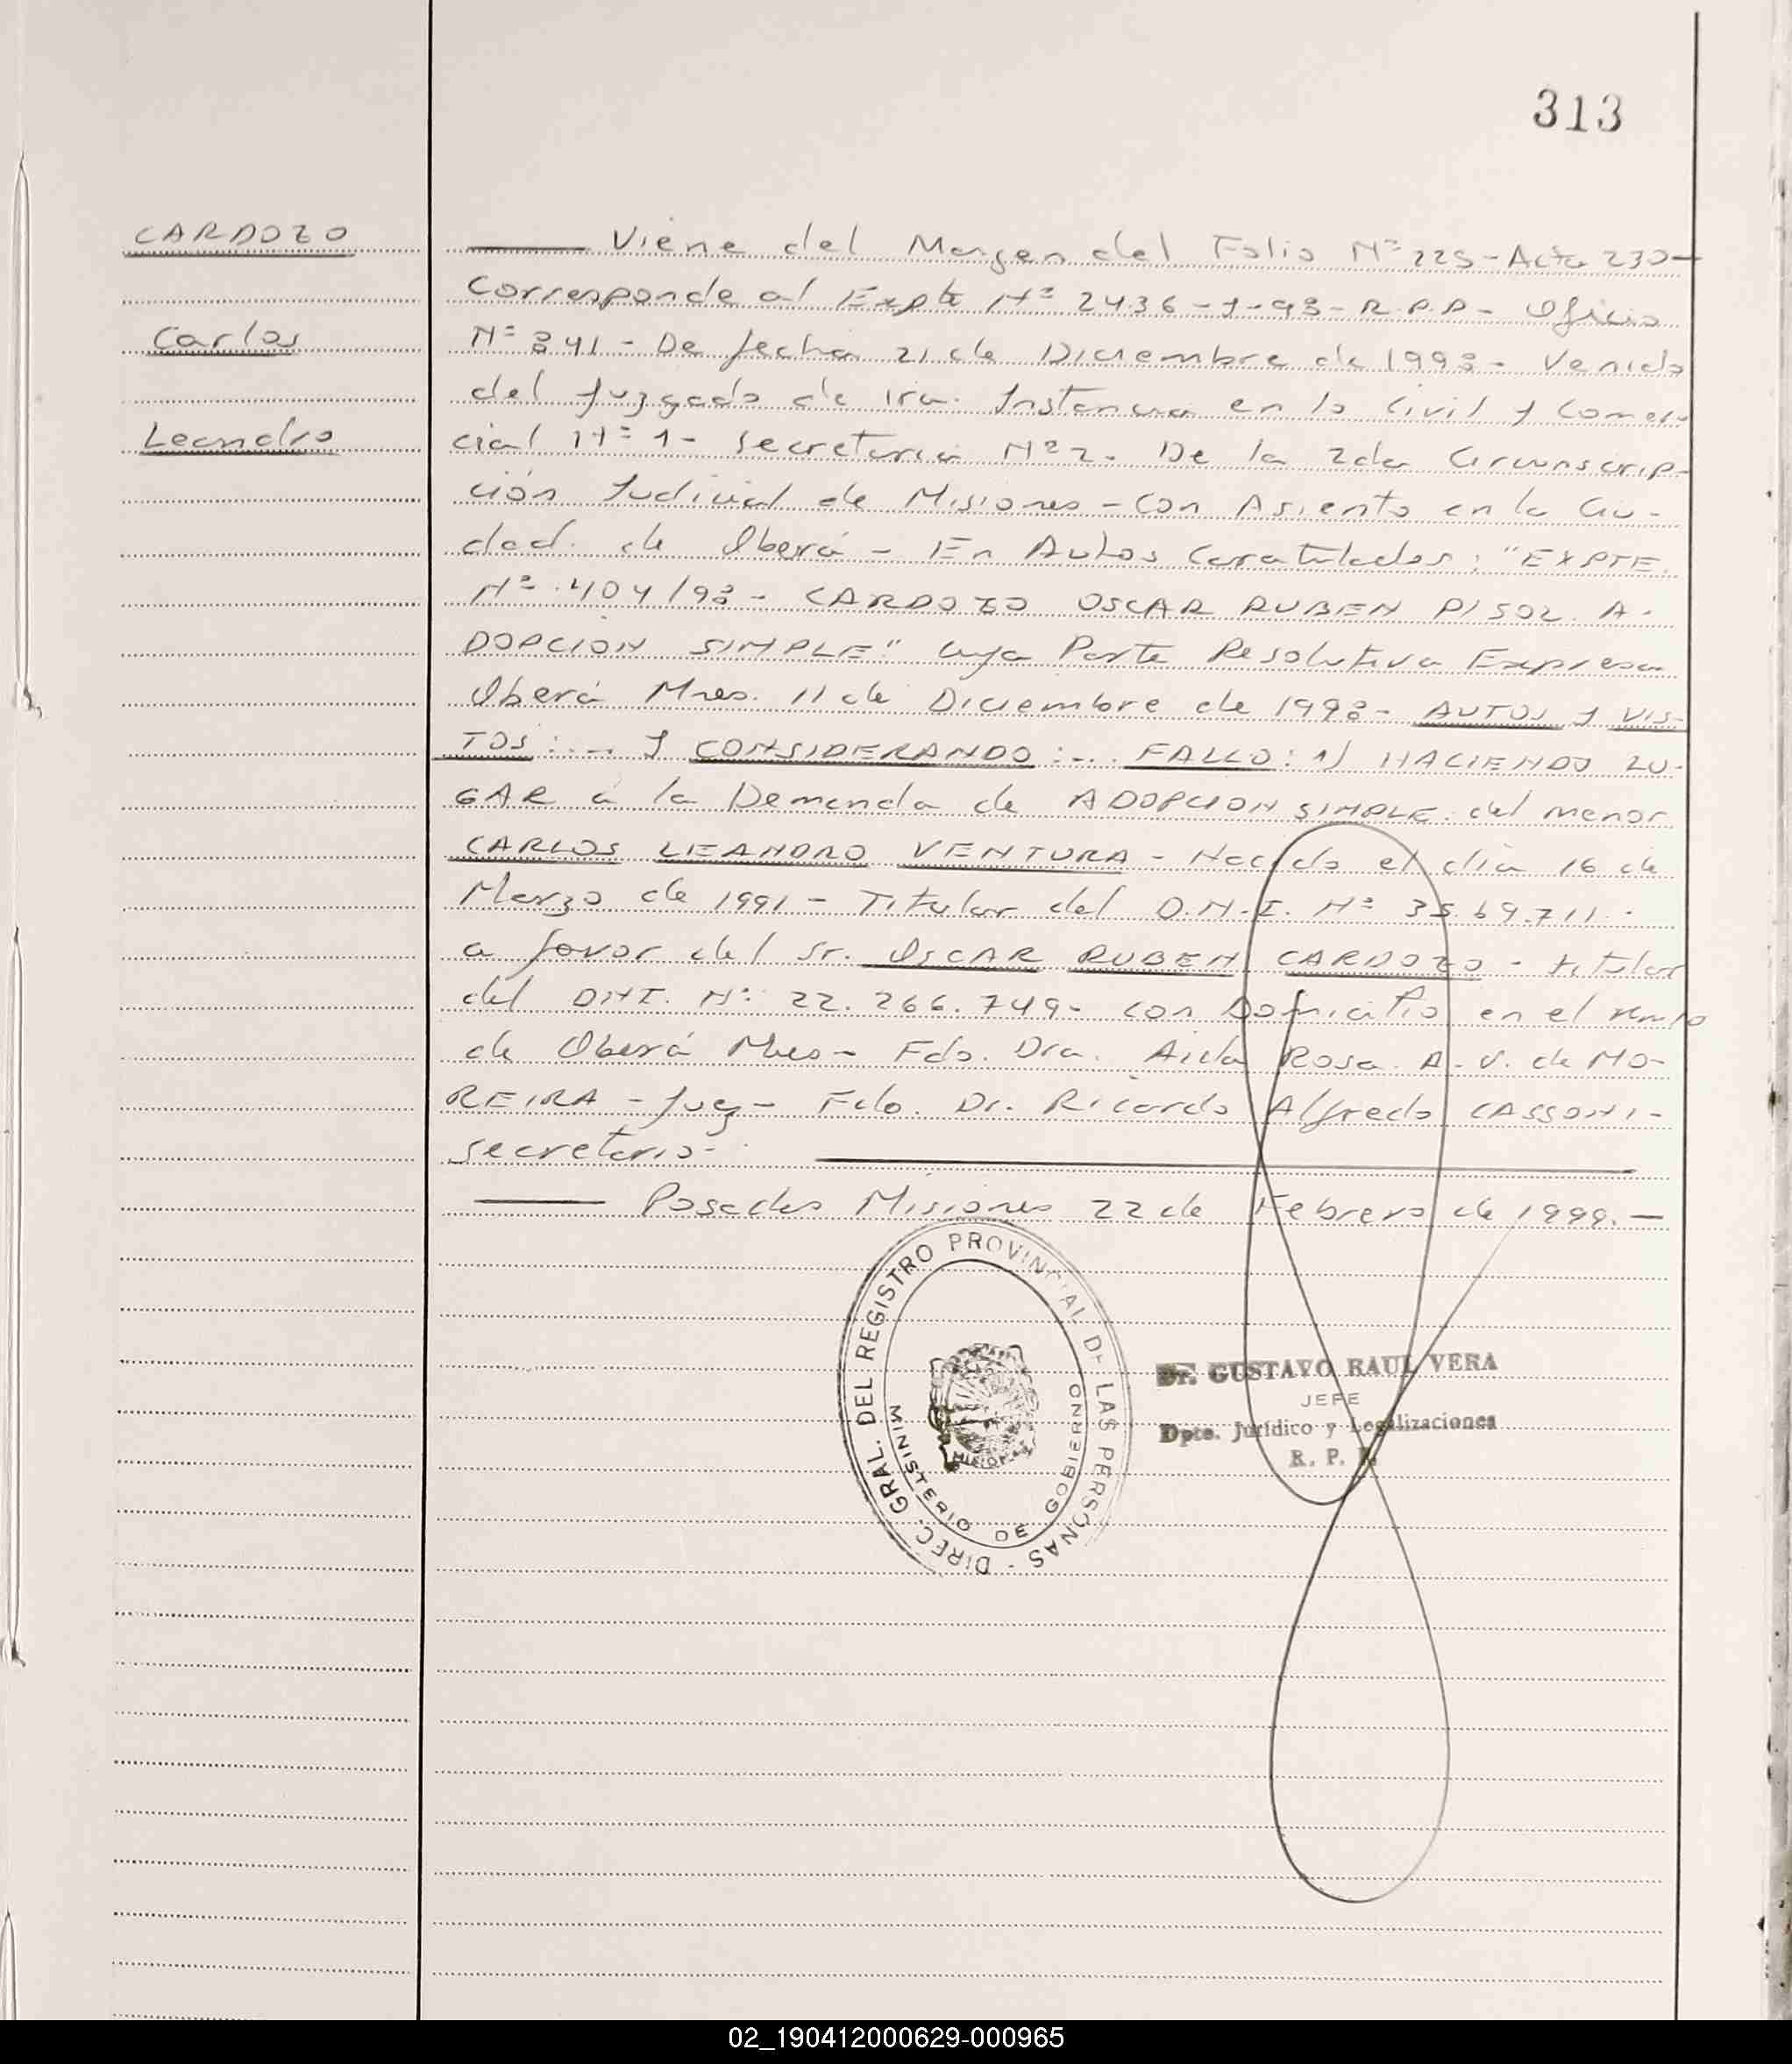 313
CARDOZO
Carlos
Leandro
Viene del Margen del Folio Nº 225 - Acta 230-
Corresponde al Expte Nº 2436-J-98-R.P.P- Oficio
Nº 841 - De fecha 21 de Diciembre de 1998- Venido
del Juzgado de 1ra. Instancia en lo Civil y Comer-
cial Nº 1- Secretaria Nº 2. De la 2da Circunscrip-
ción Judicial de Misiones - Con Asiento en la Ciu-
dad. de Oberá - En Autos Caratulados: "EXPTE.
Nº 404/98- CARDOZO OSCAR RUBEN P/SOL. A-
DOPCION SIMPLE" cuya Parte Resolutiva Expresa
Oberá Mnes. 11 de Diciembre de 1998- AUTOS Y VIS-
TOS:... Y CONSIDERANDO:... FALLO: 1) HACIENDO LU-
GAR a la Demanda de ADOPCION SIMPLE. del menor
CARLOS LEANDRO VENTURA - Nacido el día 16 de
Marzo de 1991 - Titular del D.N.I. Nº 35.69.711.
a favor del Sr. OSCAR RUBEN CARDOZO - titular
del DNI. Nº: 22.266.749- con Domicilio en el
de Oberá Mnes- Fdo. Dra. Aida Rosa. A.V. de MO-
REIRA - Juez- Fdo. Dr. Ricardo Alfredo CASSONI-
secretario-
Posadas Misiones 22 de Febrero de 1999.-
DIREC. GRAL. DEL REGISTRO PROVINCIAL DE LAS PERSONAS -
MINISTERIO DE GOBIERNO
Dr. GUSTAVO RAUL VERA
JEFE
Dpto. Jurídico y Legalizaciones
R. P. P.
02_190412000629-000965